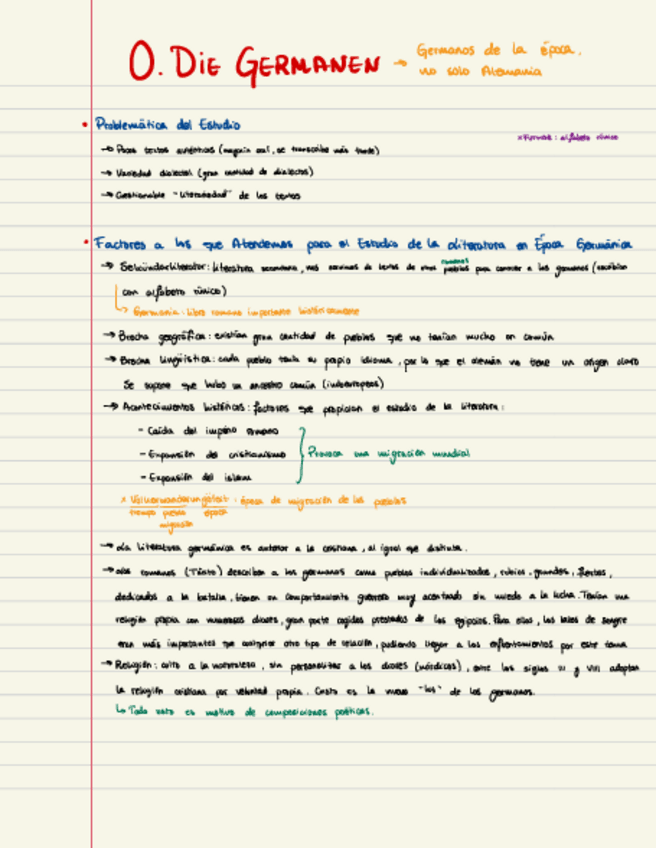 0. DIE GERMANEN → Germanos de la época,
no sólo Alemania
• Problemática del Estudio
x Formas: alfabeto rúnico
→ Pocos textos auténticos (mayoría oral, se transcribe más tarde)
→ Variedad dialectal (gran cantidad de dialectos)
→ Cuestionable "literariedad" de los textos
• Factores a los que Atendemos para el Estudio de la Literatura en Época Germánica
→ Sekundärliteratur: literatura secundaria, nos de textos de otros pueblos para conocer a los germanos (escribían
romanos
con alfabeto rúnico)
↳ Germania: libro romano importante históricamente
→ Brecha geográfica: existían gran cantidad de pueblos que no tenían mucho en común
→ Brecha lingüística: cada pueblo tenía su propio idioma, por lo que el alemán no tiene un origen claro
Se supone que hubo un ancestro común (indoeuropeo)
→ Acontecimientos históricos: factores que propician el estudio de la literatura:
- Caída del imperio romano
- Expansión del cristianismo } Provoca una migración mundial
- Expansión del islam
x Völkerwanderungszeit: época de migración de los pueblos
tiempo pueblo época
migración
→ La literatura germánica es anterior a la cristiana, al igual que distinta.
→ Los romanos (Tácito) describen a los germanos como pueblos individualizados, rubios, grandes, fuertes,
dedicados a la batalla, tienen un comportamiento guerrero muy acentuado sin miedo a la lucha. Tenían una
religión propia con numerosos dioses, gran parte cogidos prestados de los egipcios. Para ellos, los lazos de sangre
eran más importantes que cualquier otro tipo de relación, pudiendo llegar a los enfrentamientos por este tema
→ Religión: culto a la naturaleza, sin personalizar a los dioses (nórdicos), entre los siglos y VIII adoptan
la religión cristiana por voluntad propia. Cristo es la nueva "luz" de los germanos.
↳ Todo esto es motivo de composiciones poéticas.